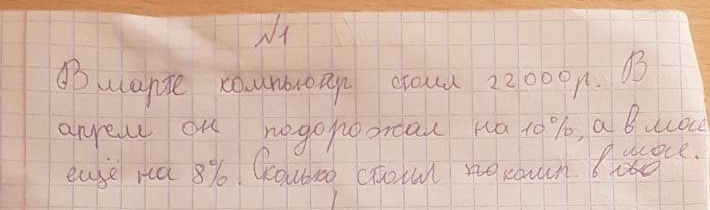 №1
В марте компьютер стоил 22000р. В
апреле он подорожал на 10%, а в мае
ещё на 8%. Сколько стоил комп. в мае.